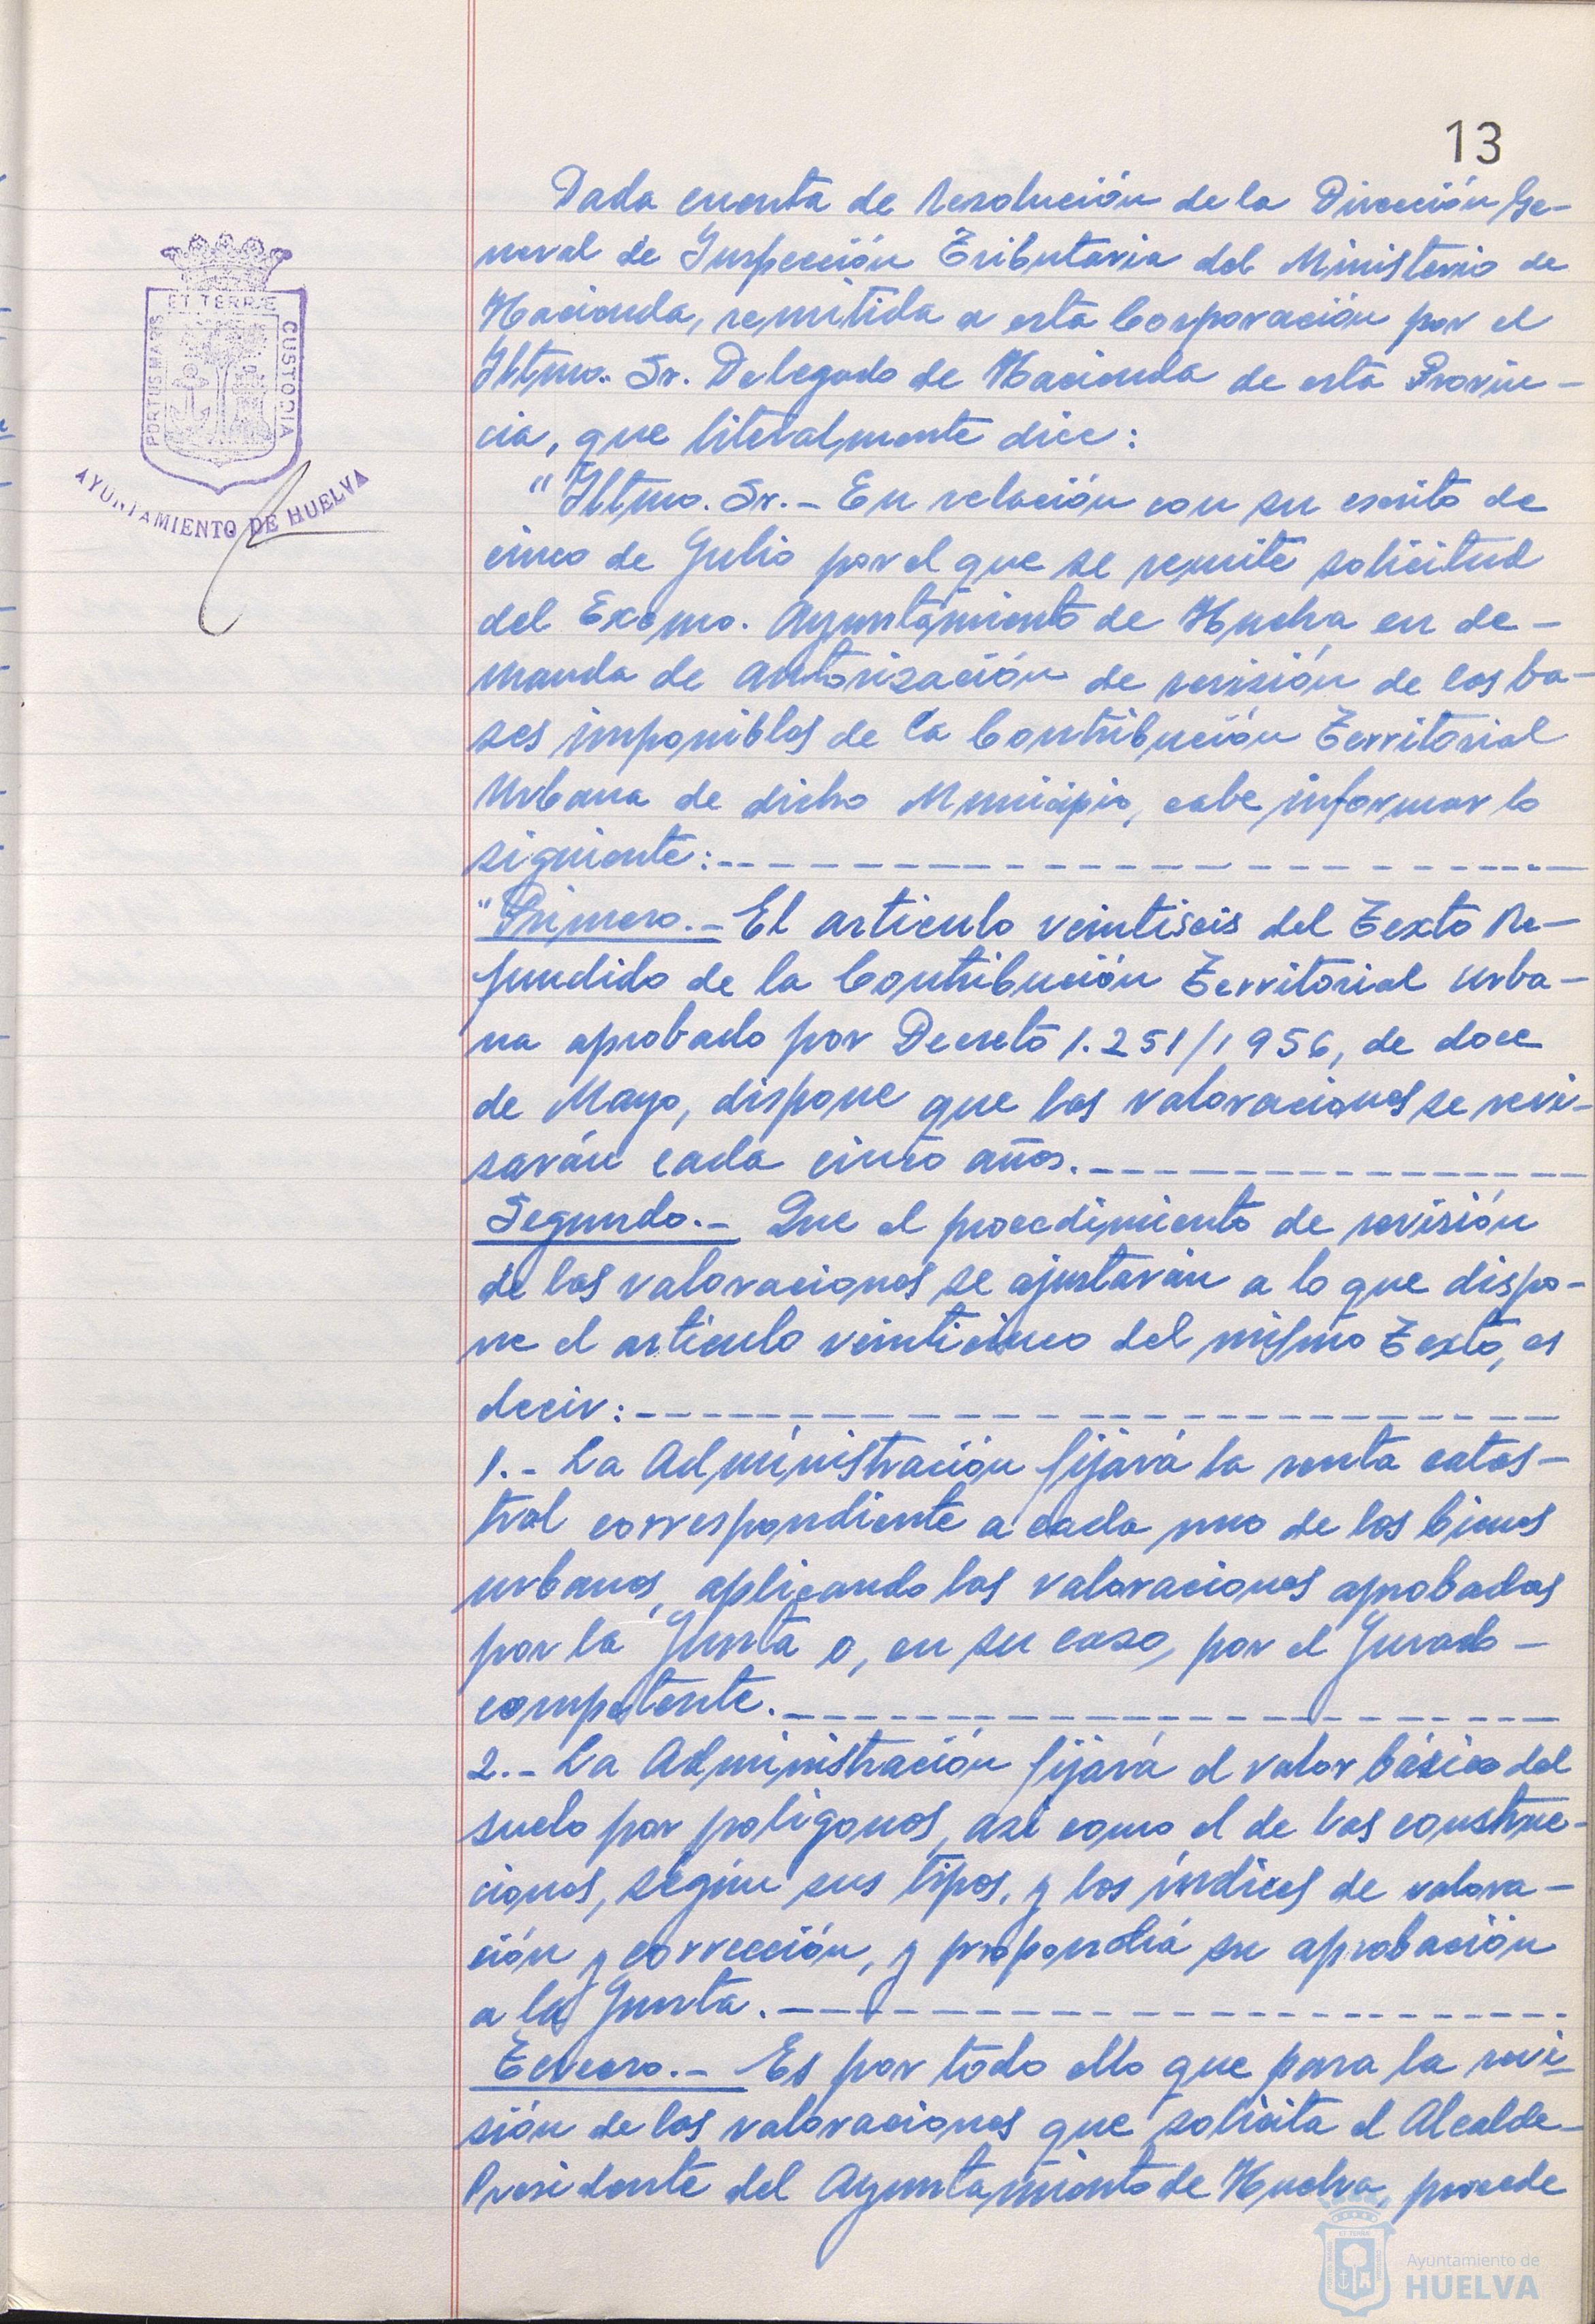 13
Dada cuenta de Resolución de la Dirección Ge-
neral de Inspección Tributaria del Ministerio de
Hacienda, remitida a esta Corporación por el
Iltmo. Sr. Delegado de Hacienda de esta Provin-
cia, que literalmente dice:
"Iltmo. Sr.- En relación con su escrito de
cinco de Julio por el que se remite solicitud
del Excmo. Ayuntamiento de Huelva en de-
manda de autorización de revisión de las ba-
ses imponibles de la Contribución Territorial
Urbana de dicho Municipio, cabe informar lo
siguiente:
"Primero.- El articulo veintiseis del Texto Re-
fundido de la Contribución Territorial Urba-
na aprobado por Decreto 1.251/1956, de doce
de Mayo, dispone que las valoraciones se revi-
sarán cada cinco años.
Segundo.- Que el procedimiento de revisión
de las valoraciones se ajustarán a lo que dispo-
ne el articulo veinticinco del mismo Texto, es
decir:
1.- La Administración fijará la renta catas-
tral correspondiente a cada uno de los bienes
urbanos, aplicando las valoraciones aprobadas
por la Junta o, en su caso, por el Jurado-
competente.
2.- La Administración fijará el valor básico del
suelo por poligonos, asi como el de las construc-
ciones, según sus tipos, y los índices de valora-
ción y corrección, y propondrá su aprobación
a la Junta.
Tercero.- Es por todo ello que para la revi-
sión de las valoraciones que solicita el Alcalde-
Presidente del Ayuntamiento de Huelva, procede
PORTUS MARIS
ET TERRÆ
CUSTODIA
AYUNTAMIENTO DE HUELVA
Ayuntamiento de
HUELVA